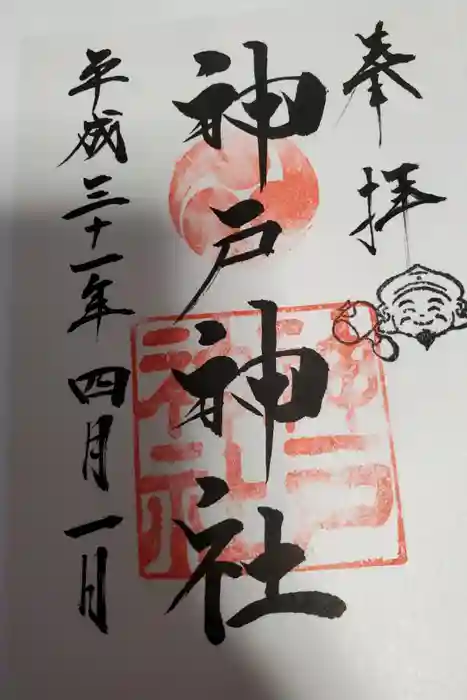 奉拝
神戸神社
平成三十一年四月一日
神戸
神社